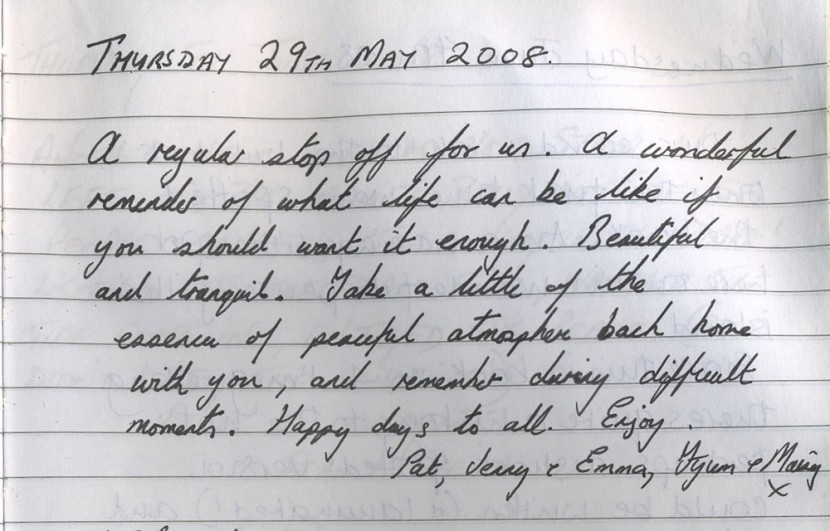 THURSDAY 29TH MAY 2008.
A regular stop off for us. A wonderful
reminder of what life can be like if
you should want it enough. Beautiful
and tranquil. Take a little of the
essence of peaceful atmosphere back home
with you, and remember during difficult
moments. Happy days to all. Enjoy.
Pat, Jerry + Emma, +
x